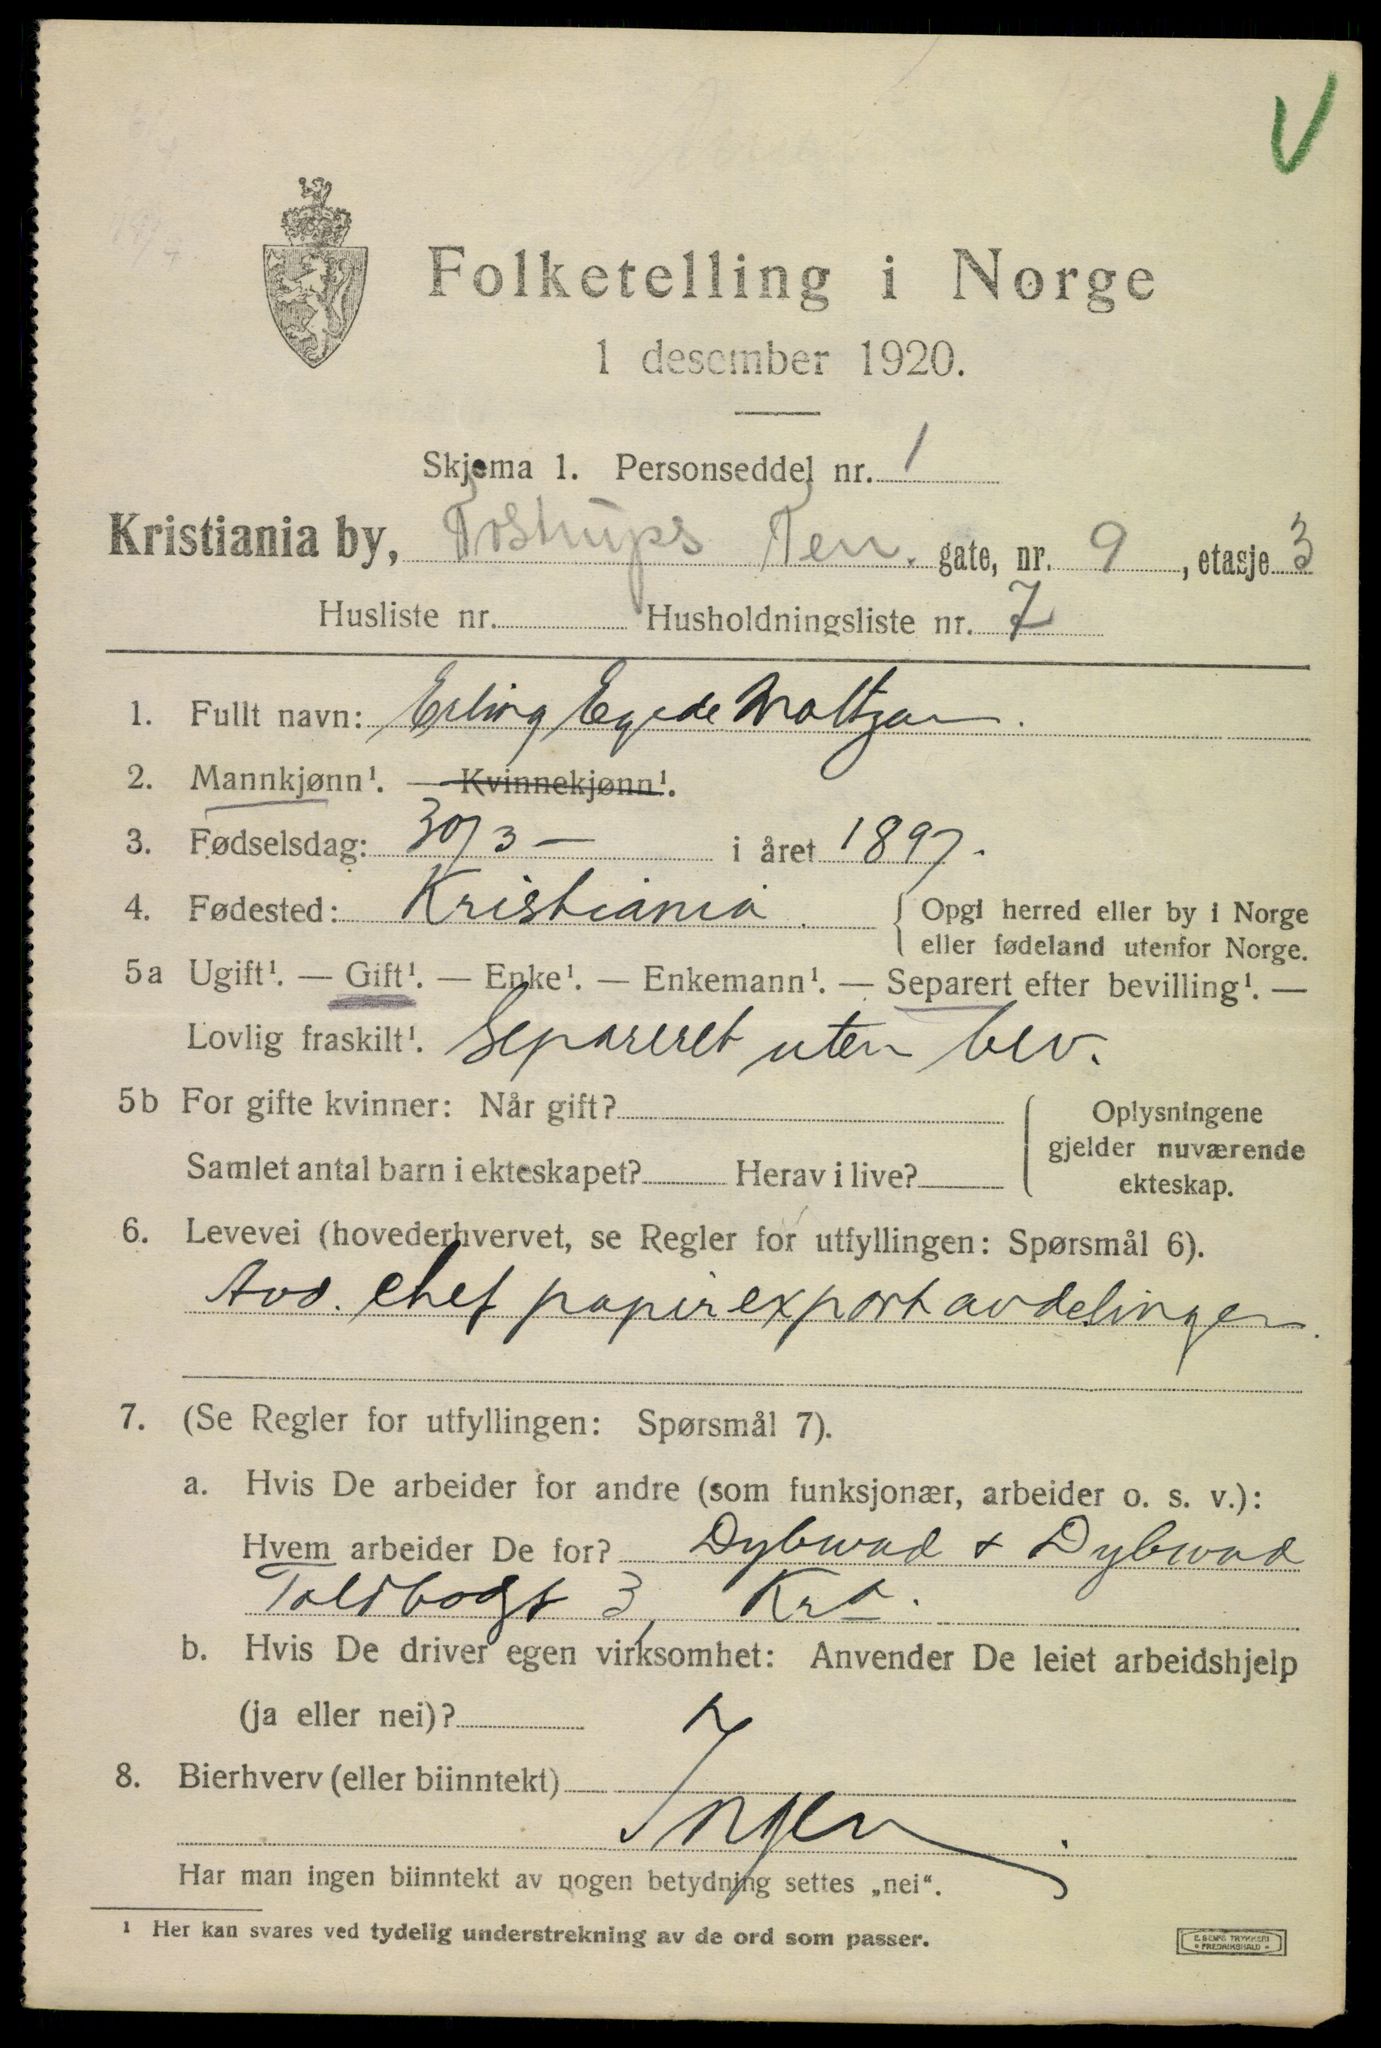 V
Folketelling i Norge
1 desember 1920.
Skjema 1. Personseddel nr. 1
Kristiania by, Tostrups Terr. gate, nr. 9, etasje 3
Husliste nr. Husholdningsliste nr. 7
1. Fullt navn: Erling Egede Moltzau.
2. Mannkjønn¹. — Kvinnekjønn¹.
3. Fødselsdag: 30/3 — i året 1897.
4. Fødested: Kristiania. { Opgi herred eller by i Norge
eller fødeland utenfor Norge.
5a Ugift¹. — Gift¹. — Enke¹. — Enkemann¹. — Separert efter bevilling¹. —
Lovlig fraskilt¹. Separeret uten bev.
5b For gifte kvinner: Når gift? { Oplysningene
gjelder nuværende
Samlet antal barn i ekteskapet? Herav i live? ekteskap.
6. Levevei (hovederhvervet, se Regler for utfyllingen: Spørsmål 6).
Avd. chef papirexportavdelingen.
7. (Se Regler for utfyllingen: Spørsmål 7).
a. Hvis De arbeider for andre (som funksjonær, arbeider o. s. v.):
Hvem arbeider De for? Dybwad + Dybwad
Toldbogt 3, Kra.
b. Hvis De driver egen virksomhet: Anvender De leiet arbeidshjelp
(ja eller nei)?
8. Bierhverv (eller biinntekt)
Ingen.
Har man ingen biinntekt av nogen betydning settes „nei“.
¹ Her kan svares ved tydelig understrekning av de ord som passer.
E. SEMS TRYKKERI
• FREDRIKSHALD •